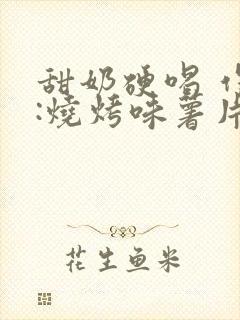 甜奶硬唱
:燒烤味薯片
花生鱼米